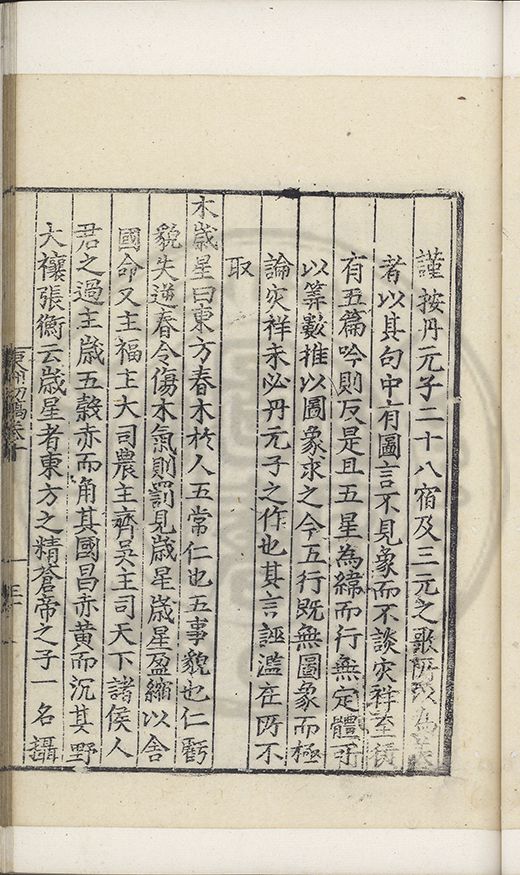 謹按丹元子二十八宿及三元之歌所以為美
者以其句中有圖言不見象而不談灾祥至
有五篇吟則反是且五星為緯而行無定體可
以筭數推以圖象求之今五行既無圖象而極
論灾祥未必丹元子之作也其言誣濫在所不
取
木歲星曰東方春木於人五常仁也五事貌也仁虧
貌失逆春令傷木氣則罰見歲星歲星盈縮以舍
國命又主福主大司農主齊吳主司天下諸侯人
君之過主歲五穀赤而角其國昌赤黃而沉其野
大穰張衡云歲星者東方之精蒼帝之子一名攝